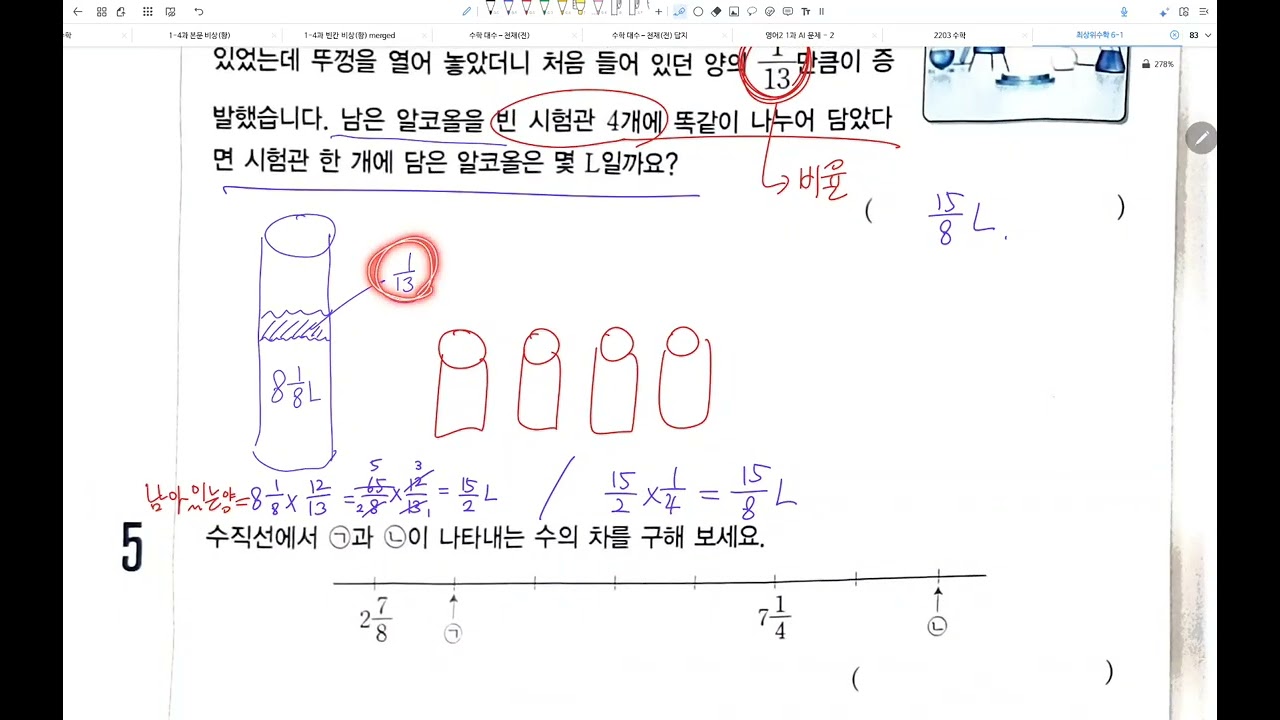 1-4과 본문 비상(황)
1-4과 빈칸 비상(황) merged
수학 대수 – 천재(전)
수학 대수 – 천재(전) 답지
영어2 1과 AI 문제 ~ 2
2203 수학
최상위수학 6-1
83
278%
있었는데 뚜껑을 열어 놓았더니 처음 들어 있던 양의 1/13만큼이 증
발했습니다. 남은 알코올을 빈 시험관 4개에 똑같이 나누어 담았다
면 시험관 한 개에 담은 알코올은 몇 L일까요?
비율
( 15/8 L. )
1/13
8 1/8 L
남아있는양 = 8 1/8 × 12/13 = 65/8 × 12/13 = 15/2 L / 15/2 × 1/4 = 15/8 L
5 수직선에서 ㉠과 ㉡이 나타내는 수의 차를 구해 보세요.
2 7/8 ㉠ 7 1/4 ㉡
( )